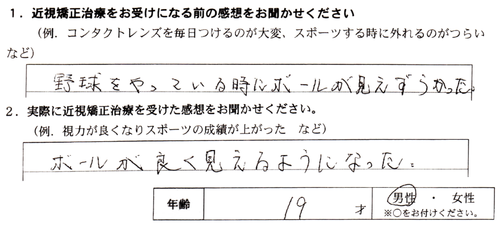 1．近視矯正治療をお受けになる前の感想をお聞かせください
(例．コンタクトレンズを毎日つけるのが大変、スポーツする時に外れるのがつらい
など)
野球をやっている時にボールが見えずらかった.
2．実際に近視矯正治療を受けた感想をお聞かせください。
(例．視力が良くなりスポーツの成績が上がった　など)
ボールが良く見えるようになった.
年齢　19　才　男性　・　女性
※○をお付けください。